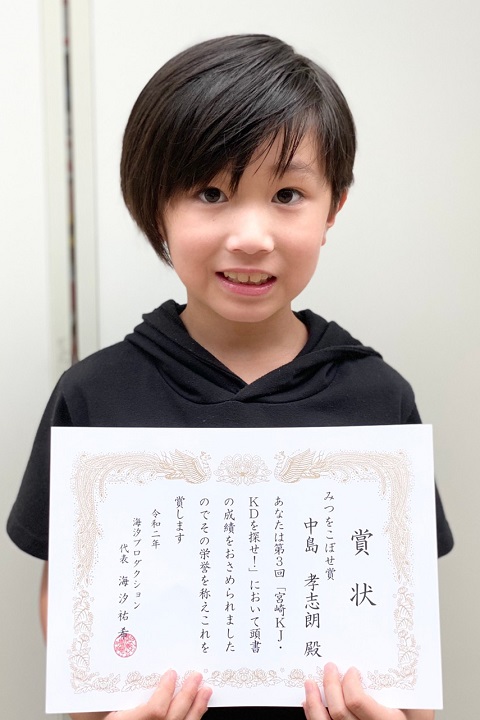 賞状
みつをこぼせ賞
中島 孝志朗 殿
あなたは第3回「宮崎KJ・
KDを探せ!」において頭書
の成績をおさめられました
のでその栄誉を称えこれを
賞します
令和二年
海汐プロダクション
代表 海汐祐希